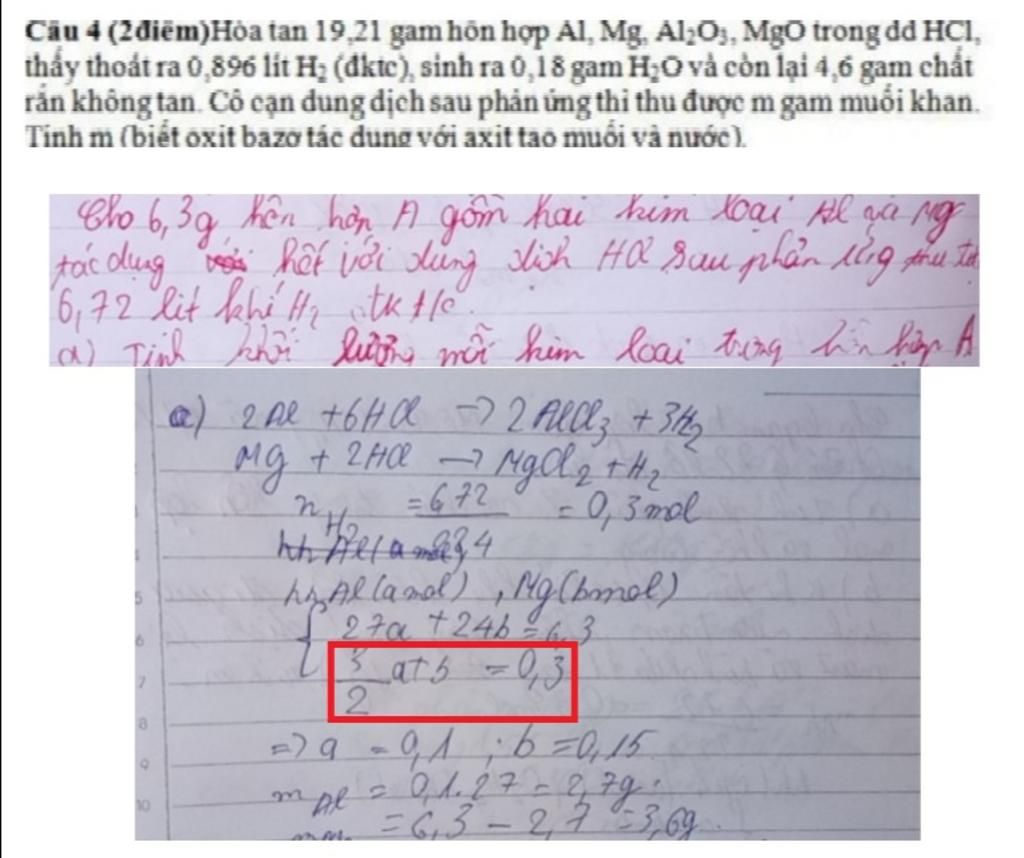 Câu 4 (2điểm)Hòa tan 19,21 gam hỗn hợp Al, Mg, Al₂O₃, MgO trong dd HCl,
thấy thoát ra 0,896 lít H₂ (đktc), sinh ra 0,18 gam H₂O và còn lại 4,6 gam chất
rắn không tan. Cô cạn dung dịch sau phản ứng thì thu được m gam muối khan.
Tính m (biết oxit bazơ tác dụng với axit tạo muối và nước).
Cho 6,3g hỗn hợp A gồm hai kim loại Al và Mg
tác dụng hết với dung dịch HCl sau phản ứng thu
6,72 lit khí H₂ đktc.
a) Tính khối lượng mỗi kim loại trong hỗn hợp A
a) 2Al + 6HCl → 2AlCl₃ + 3H₂
Mg + 2HCl → MgCl₂ + H₂
n H₂ = 6,72 / 22,4 = 0,3 mol
hh Al (a mol), Mg (b mol)
27a + 24b = 6,3
3/2 a + b = 0,3
=> a = 0,1 ; b = 0,15
m Al = 0,1.27 = 2,7g.
= 6,3 – 2,7 = 3,6g.